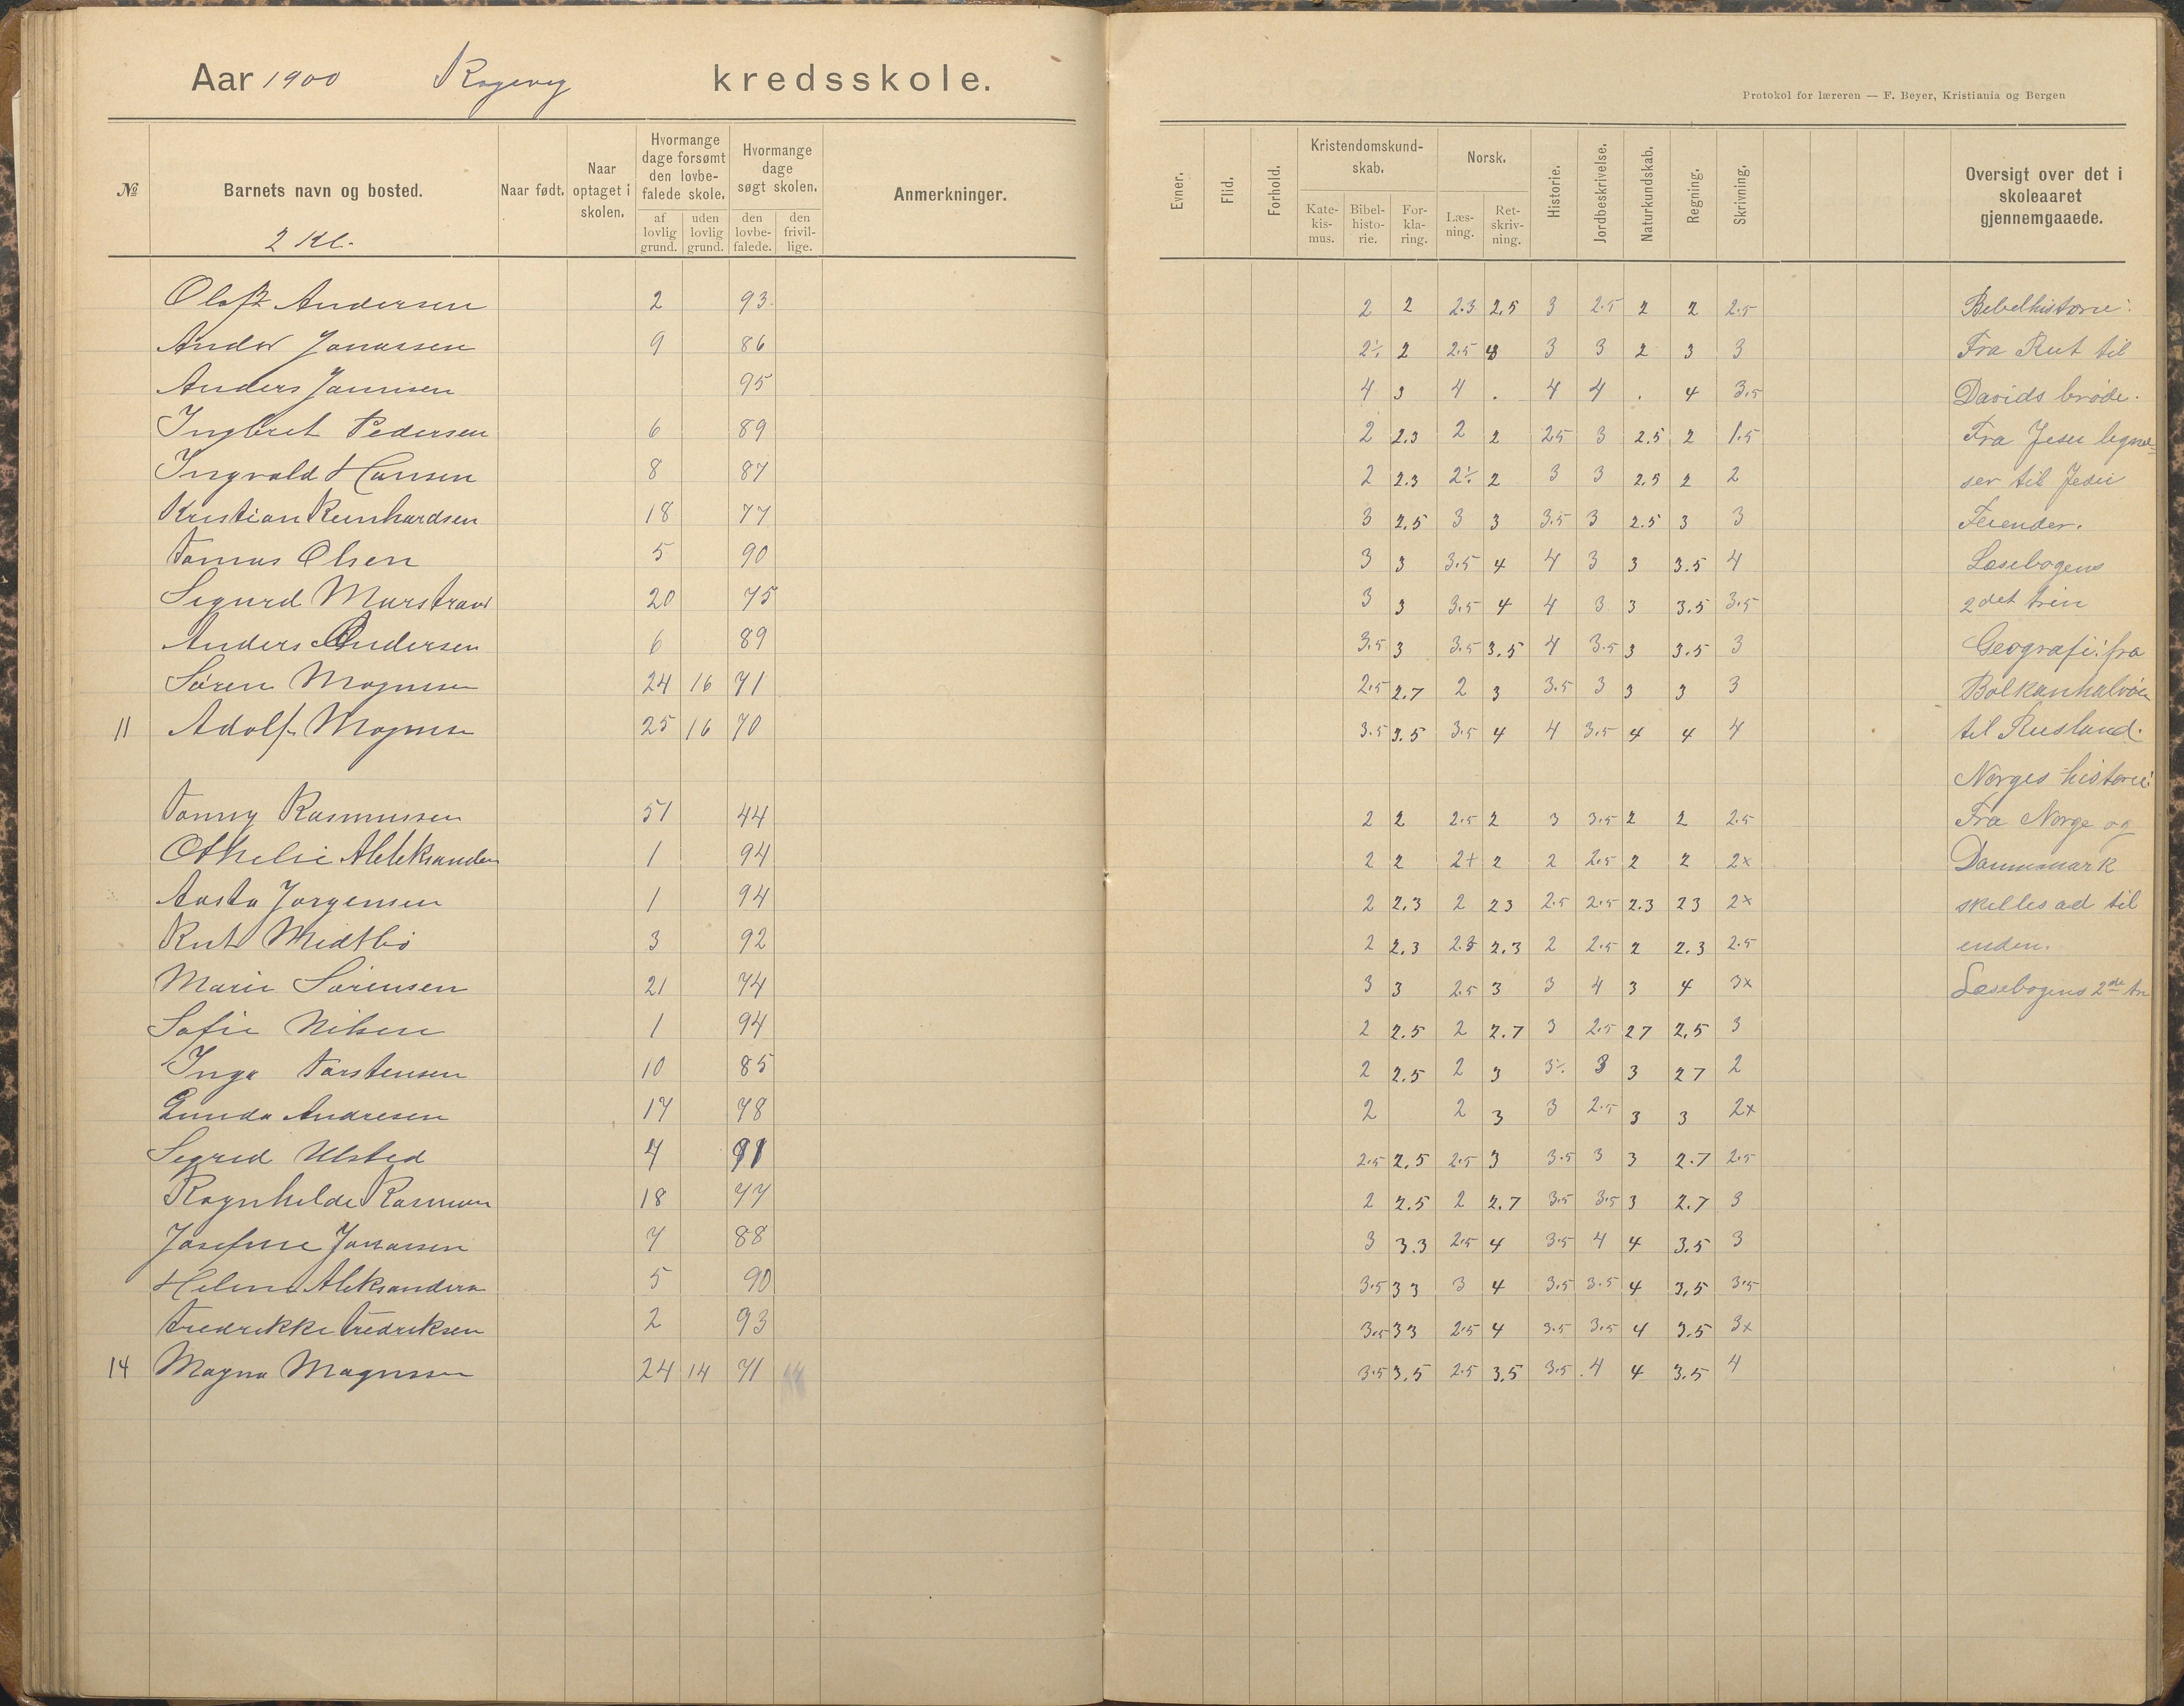 Aar 1900 kredsskole.
Protokol for læreren — F. Beyer, Kristiania og Bergen
№ Barnets navn og bosted. Naar født. Naar optaget i skolen. Hvormange dage forsømt den lovbefalede skole. af lovlig grund. uden lovlig grund. Hvormange dage søgt skolen. den lovbefalede. den frivillige. Anmerkninger.
Evner. Flid. Forhold. Kristendomskundskab. Katekismus. Bibelhistorie. Forklaring. Norsk. Læsning. Retskrivning. Historie. Jordbeskrivelse. Naturkundskab. Regning. Skrivning. Oversigt over det i skoleaaret gjennemgaaede.
2 Kl.
Andersen 2 93 2 2 2.3 2.5 3 2.5 2 2 2.5 Bibelhistorie:
Andor Jonassen 9 86 2÷ 2 2.5 3 3 2 3 3 Fra Rut til
Anders 95 4 3 4 . 4 4 . 4 3.5 Davids brøde.
Ingbret Pedersen 6 89 2 2.3 2 2 2.5 3 2.5 2 1.5 Fra Jesu lignel-
Ingvald Hansen 8 87 2 2.3 2÷ 2 3 3 2.5 2 2 ser til Jesu
Kristian Reinhardsen 18 77 3 2.5 3 3 3.5 3 2.5 3 3 Feiender.
Tomas Olsen 5 90 3 3 3.5 4 4 3 3 3.5 4 Læsebogens
Sigurd Marstrand 20 75 3 3 3.5 4 4 3 3 3.5 3.5 2det trin
Anders Andersen 6 89 3.5 3 3.5 3.5 4 3.5 3 3.5 3 Geografi: fra
Søren Magnussen 24 16 71 2.5 2.7 2 3 3.5 3 3 3 3 Balkanhalvöen
11 Adolf Magnussen 25 16 70 3.5 3.5 3.5 4 4 3.5 4 4 4 til Rusland.
Norges historie:
Rasmussen 51 44 2 2 2.5 2 3 3.5 2 2 2.5 Fra Norge og
Othelie 1 94 2 2 2+ 2 2 2.5 2 2 2× Dannmark
Aasta Jørgensen 1 94 2 2.3 2 23 2.5 2.5 2.3 23 2× skilles ad til
Rut Midtbö 3 92 2 2.3 2.3 2.3 2 2.5 2 2.3 2.5 enden.
Marie Sørensen 21 74 3 3 2.5 3 3 4 3 4 3× Læsebogens 2de
Sofie Nilsen 1 94 2 2.5 2 2.7 3 2.5 27 2,5 3
Inga Torstensen 10 85 2 2.5 2 3 3÷ 3 3 27 2
Gunda Andresen 17 78 2 2 3 3 2.5 3 3 2×
Sigrid Ulsted 4 91 2.5 2.5 2.5 3 3.5 3 3 2.7 2.5
Ragnhilde 18 77 2 2.5 2 2.7 3.5 3.5 3 2.7 3
Josefine Jonassen 7 88 3 3.3 2.5 4 3.5 4 4 3.5 3
Helene 5 90 3.5 33 3 4 3.5 3.5 4 3,5 3.5
Fredrikke Fredriksen 2 93 3.5 33 2.5 4 3.5 3.5 4 3.5 3×
14 Magna Magnussen 24 14 71 3.5 3.5 2.5 3.5 3.5 4 4 3.5 4